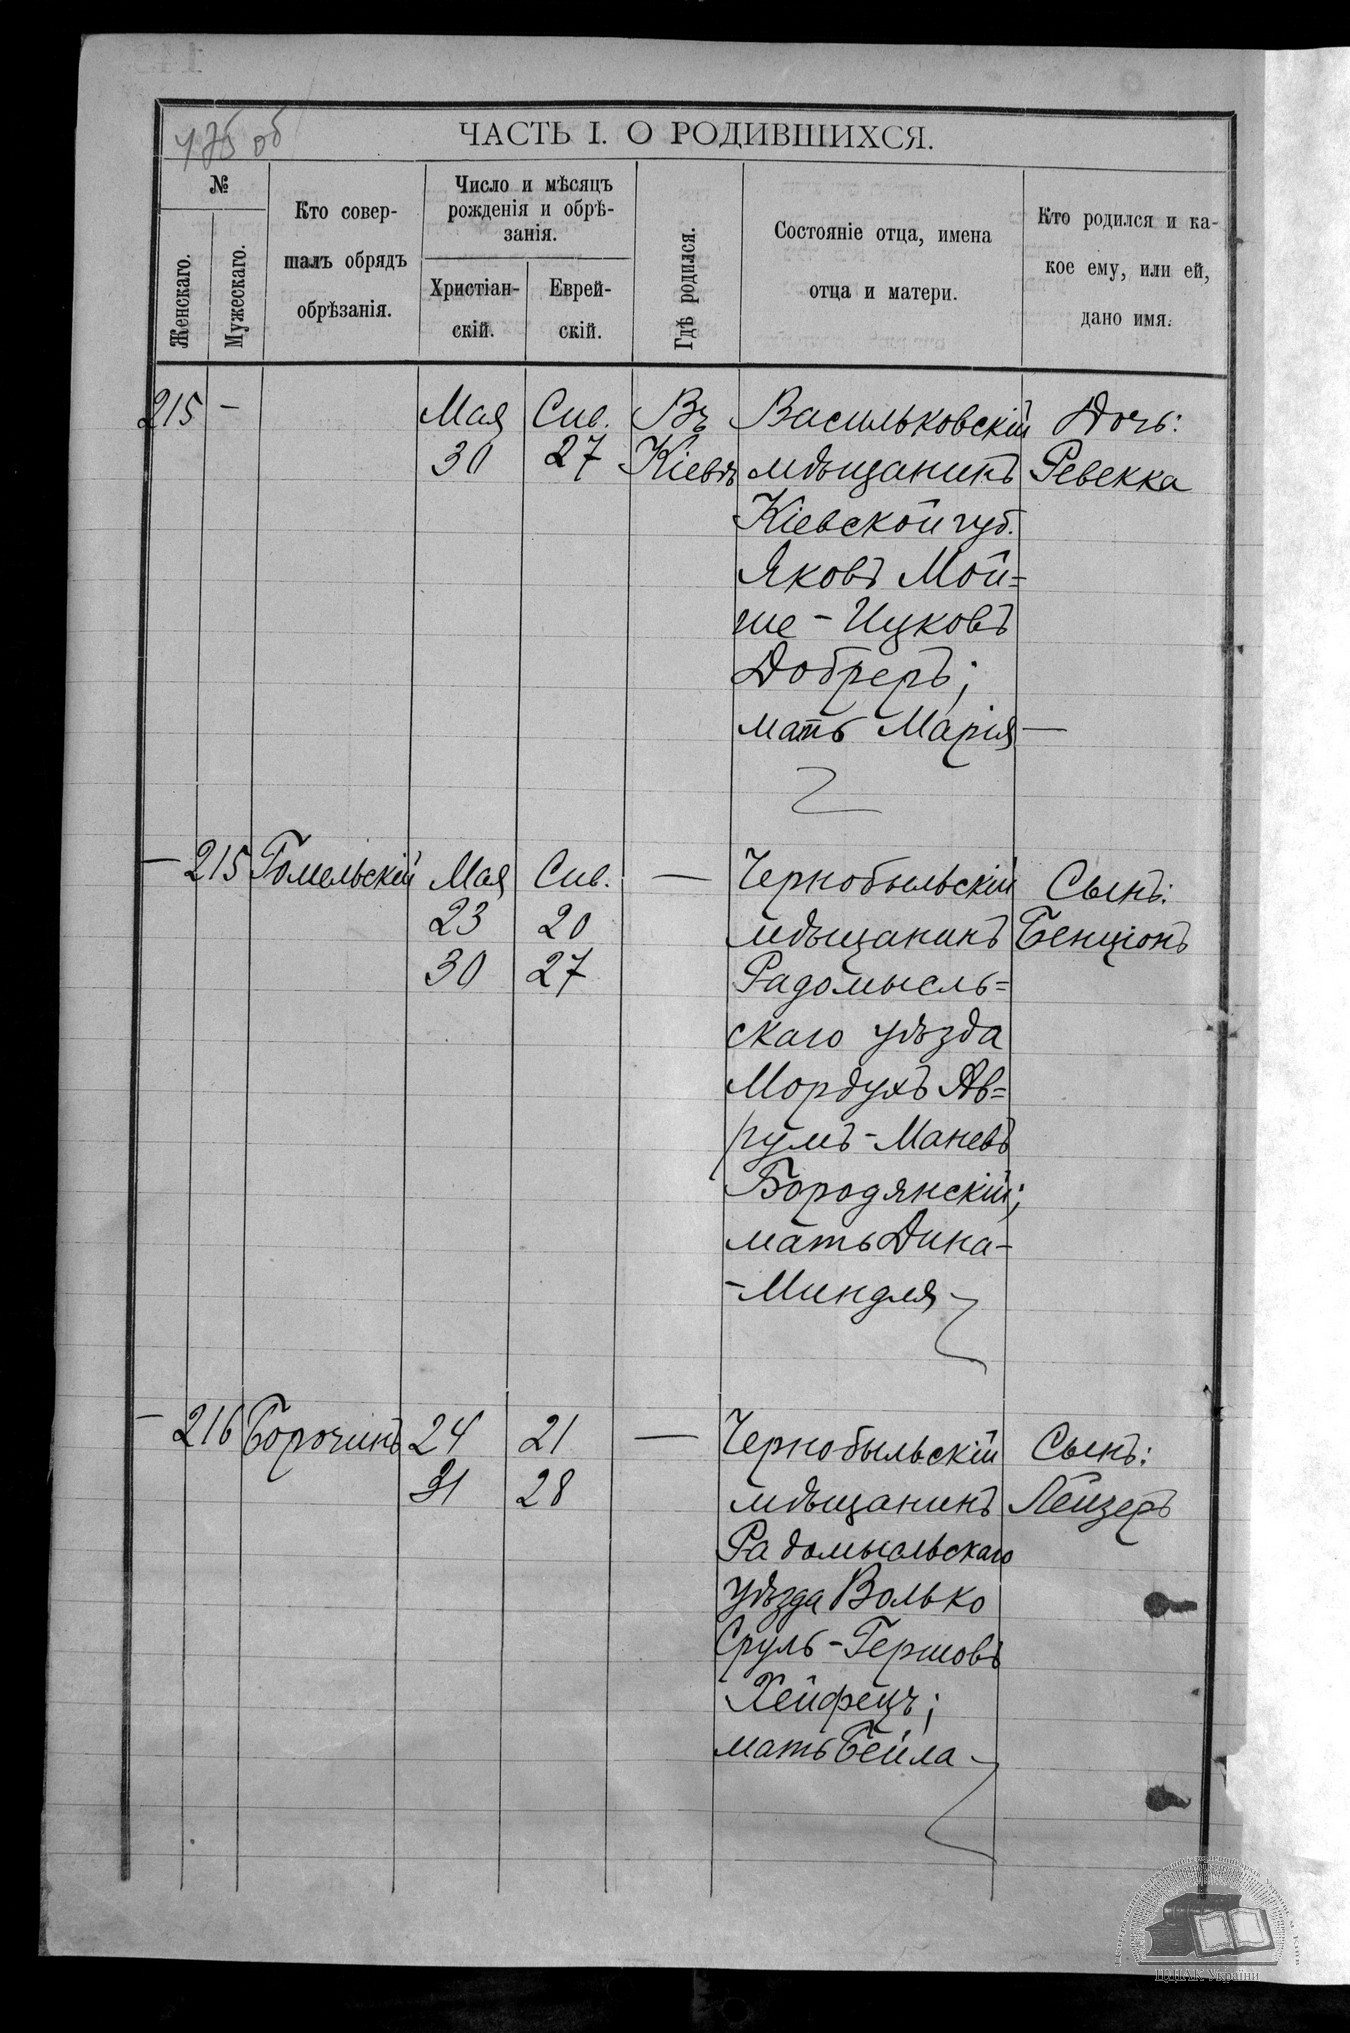 ЧАСТЬ I. О РОДИВШИХСЯ.
№
Женскаго.
Мужескаго.
Кто совер-
шалъ обрядъ
обрѣзанія.
Число и мѣсяцъ
рожденія и обрѣ-
занія.
Христіан-
скій.
Еврей-
скій.
Гдѣ родился.
Состояніе отца, имена
отца и матери.
Кто родился и ка-
кое ему, или ей,
дано имя.
215 – Мая Сив. Въ Васильковскій Дочь:
30 27 Кіевѣ мѣщанинъ Ревекка
Кіевской губ.
Яковъ Мой=
ше-Ицковъ
Добреръ;
мать Марія —
— 215 Гомельскій Мая Сив. — Чернобыльскій Сынъ:
23 20 мѣщанинъ Бенціонъ
30 27 Радомысль=
скаго уѣзда
Мордухъ Ав=
румъ-Маневъ
Бородянскій;
мать Дина-
-Миндля
– 216 Борочинъ 24 21 — Чернобыльскій Сынъ:
31 28 мѣщанинъ Лейзеръ
Радомысльскаго
уѣзда Волько
Сруль-Гершовъ
Хейфецъ;
мать Бейла
ЦДІАК України